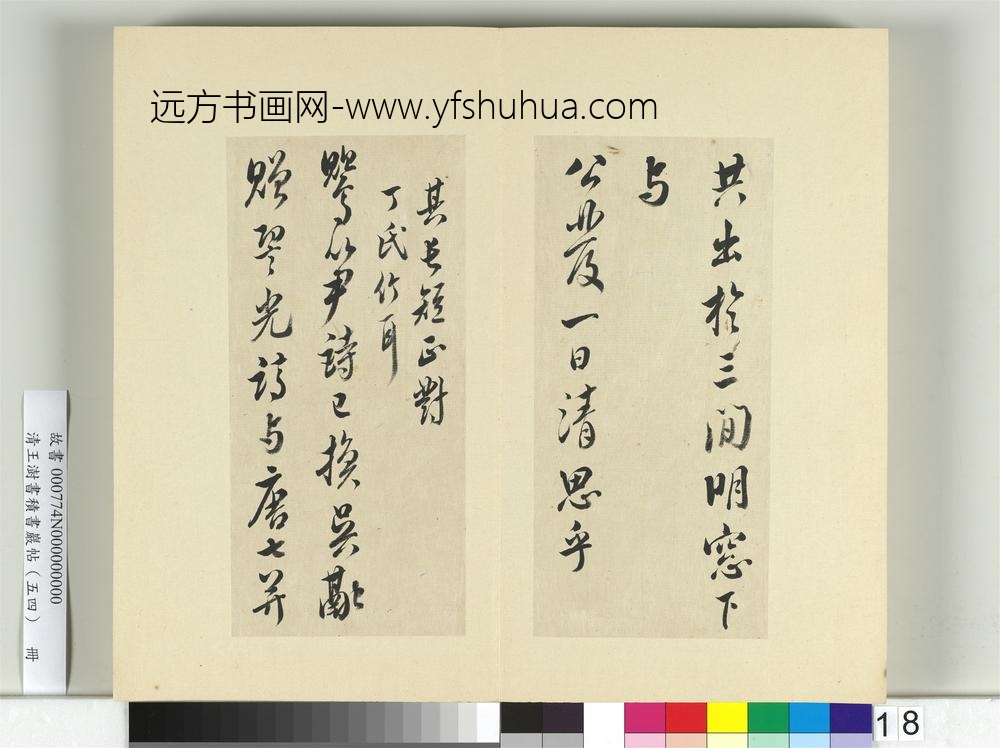 远方书画网-www.yfshuhua.com
共出於三間明窓下
与
公廢一日清思乎
其長短正對
丁氏耳
以尹詩已換吳
贈光詩与唐七并
故書 000774N000000000
清王澍書積書巖帖（五四） 冊
18